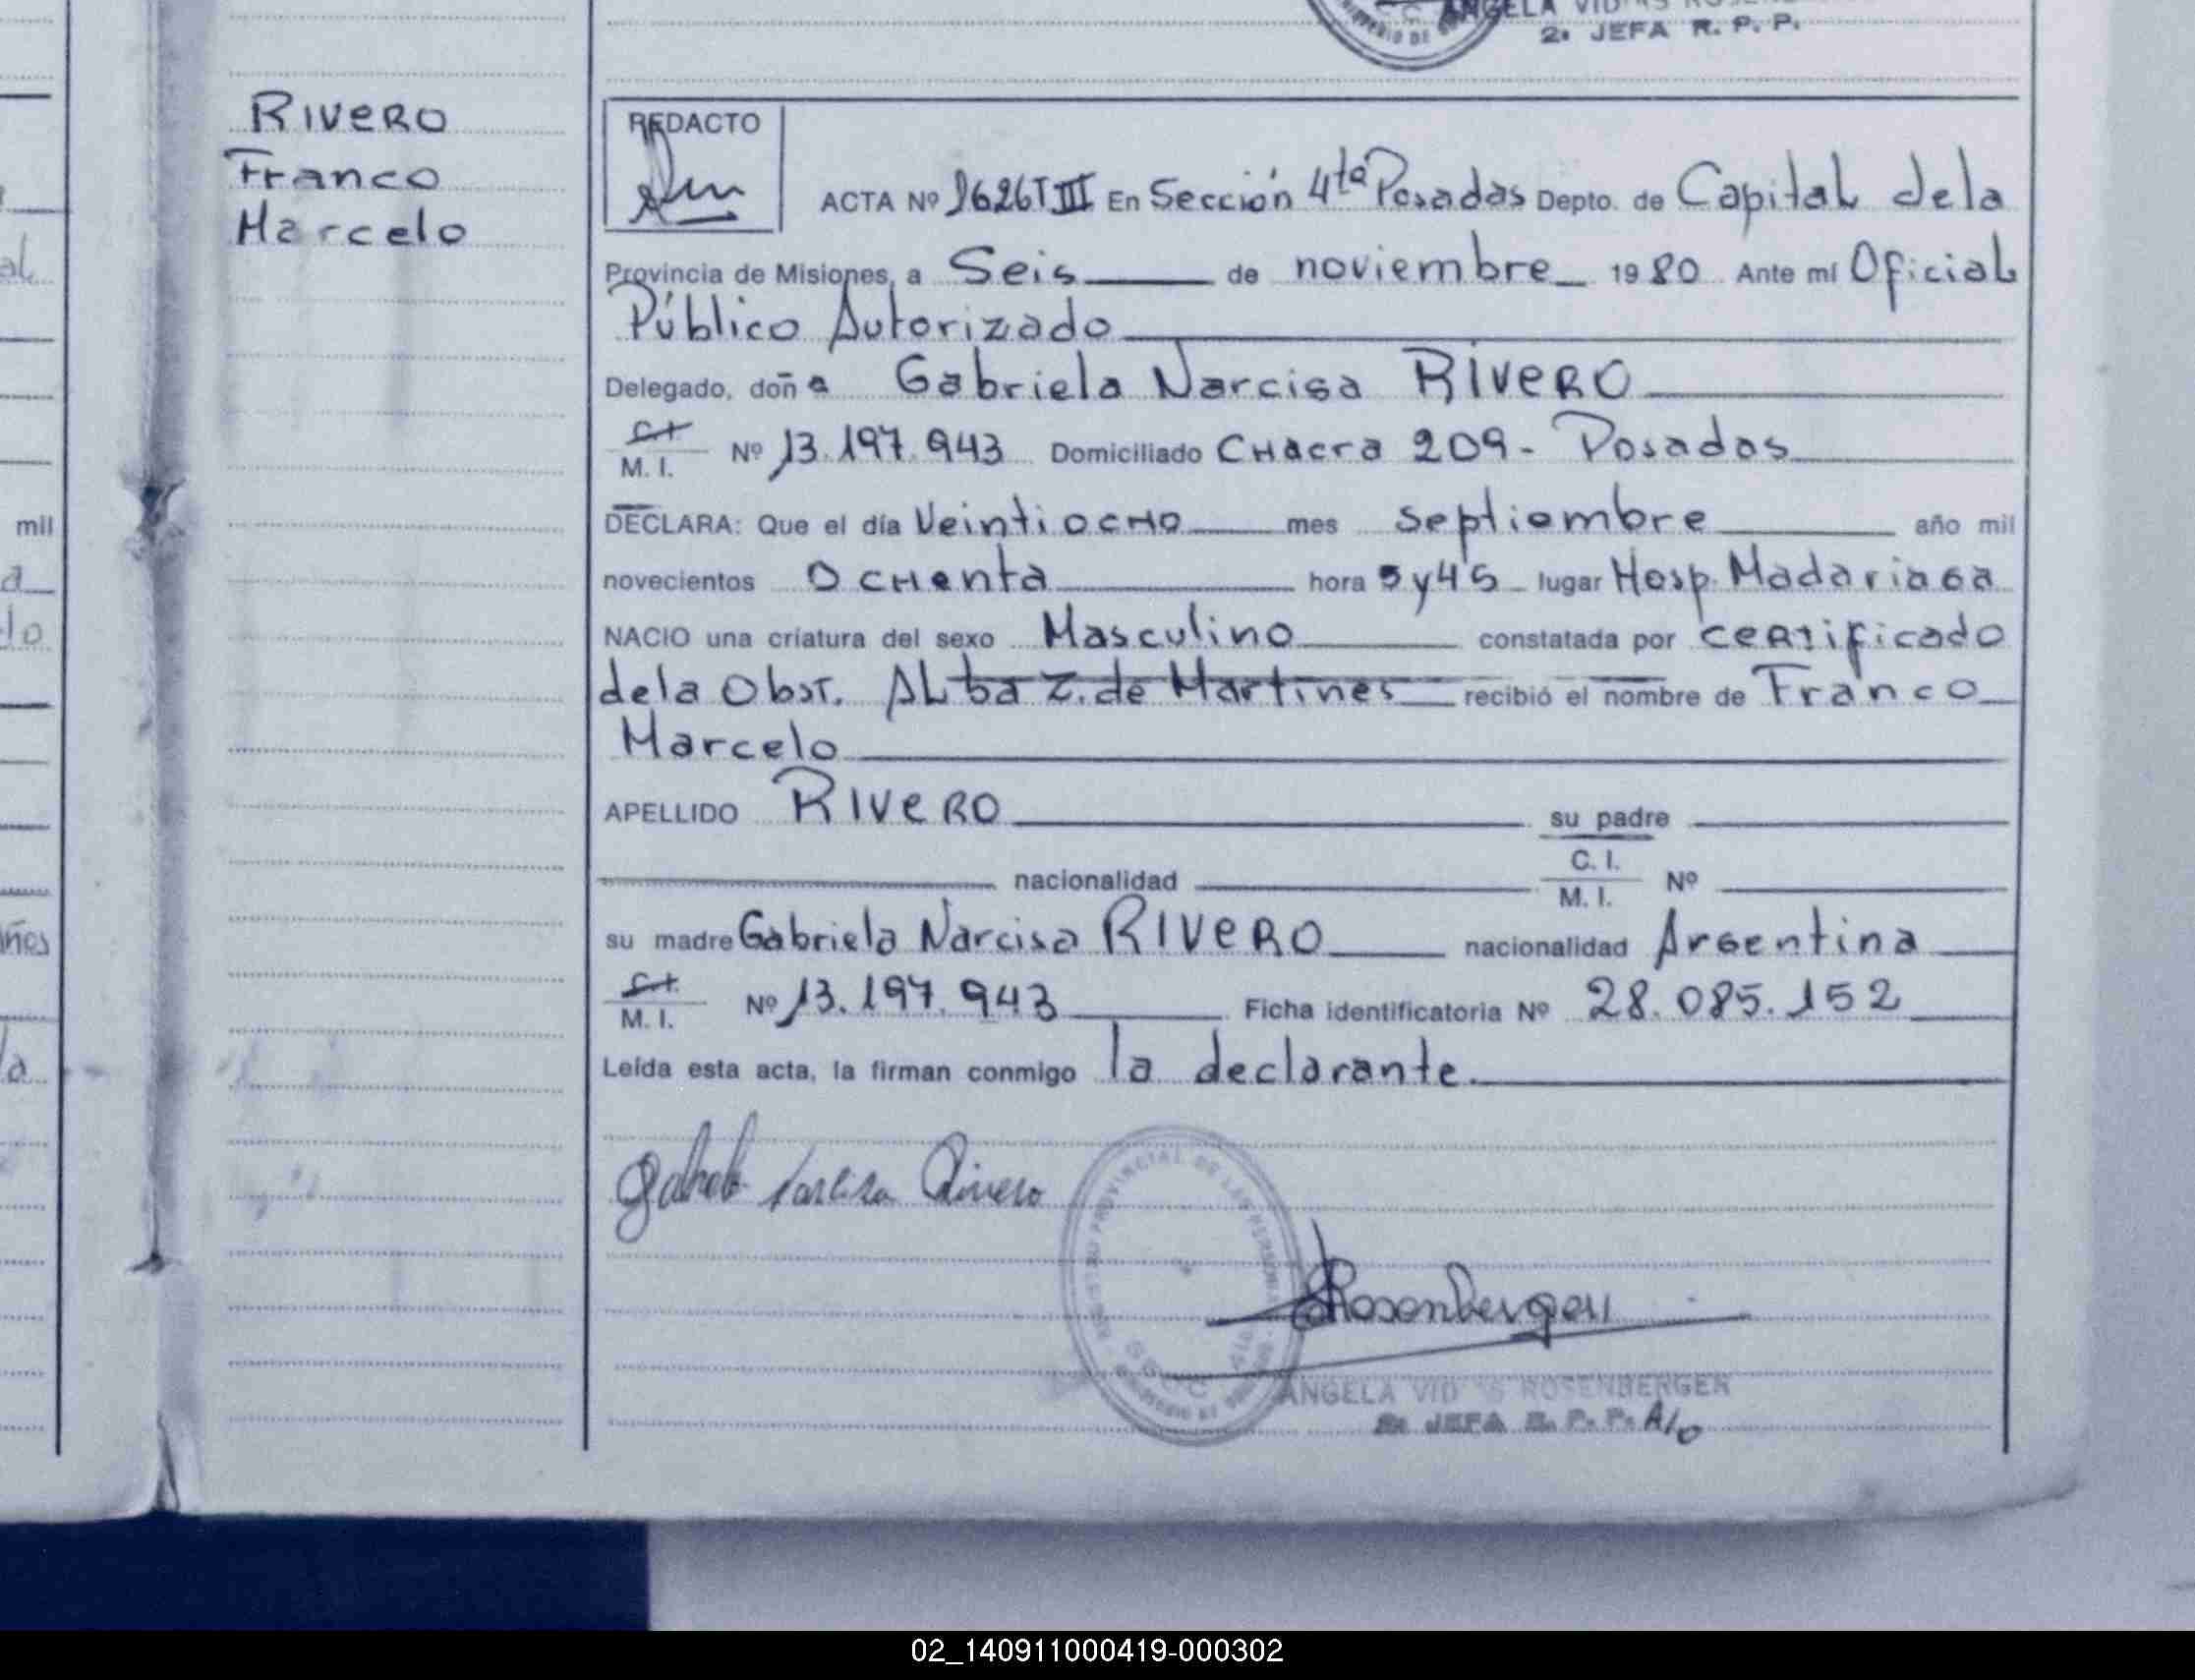 2ª JEFA R. P. P.
RIVERO
Franco
Marcelo
REDACTO
ACTA Nº 1626 T III En Sección 4ta Posadas Depto. de Capital dela
Provincia de Misiones, a Seis de noviembre 1980 Ante mí Oficial
Público Autorizado
Delegado, doña Gabriela Narcisa RIVERO
C.I. M. I. Nº 13.197.943 Domiciliado CHacra 209 - Posadas
DECLARA: Que el día Veintiocho mes septiembre año mil
novecientos OCHenta hora 5 y 45 lugar Hosp. Madariaga
NACIO una criatura del sexo Masculino constatada por certificado
dela Obst. Alba Z. de Martines recibió el nombre de Franco
Marcelo
APELLIDO RIVERO su padre
nacionalidad C. I. M. I. Nº
su madre Gabriela Narcisa RIVERO nacionalidad Argentina
C.I. M. I. Nº 13.197.943 Ficha identificatoria Nº 28.085.152
Leída esta acta, la firman conmigo la declarante.
Gabriela Narcisa Rivero
Rosenberger
ANGELA ROSENBERGER
2ª JEFA R. P. P. A/C
mil
02_140911000419-000302